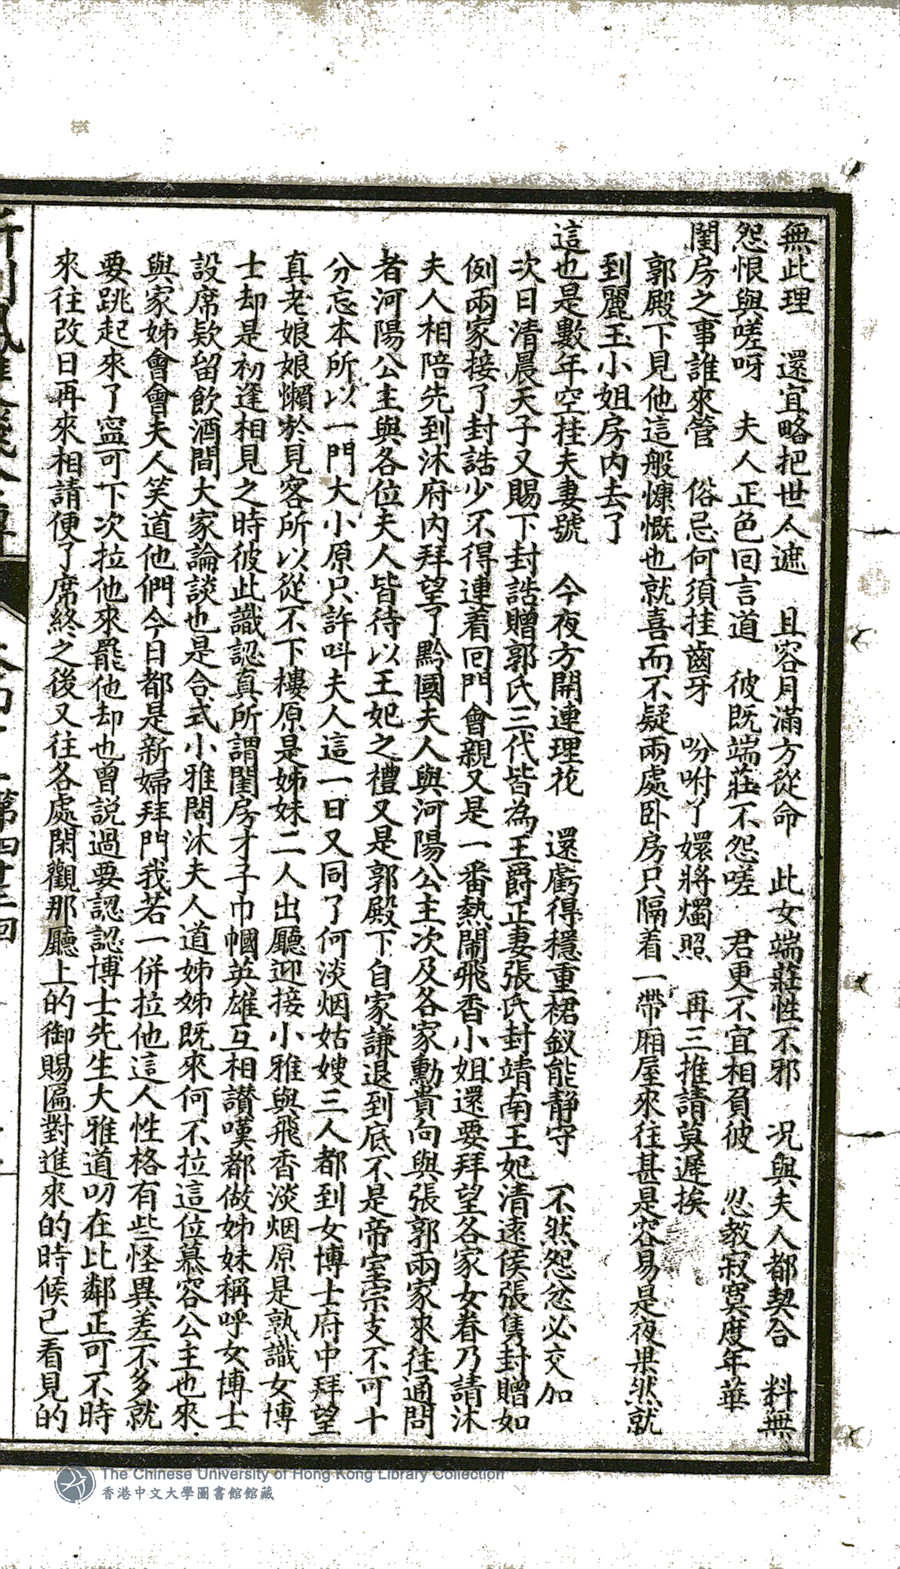 無此理　還宜略把世人遮　且容月滿方從命　此女端莊性不邪　况與夫人都契合　料無
怨恨與嗟呀　夫人正色回言道　彼既端莊不怨嗟　君更不宜相負彼　忍教寂寞度年華
閨房之事誰來管　俗忌何須挂齒牙　吩咐丫嬛將燭照　再三推請莫遲挨
郭殿下見他這般慷慨也就喜而不疑兩處卧房只隔着一帶厢屋來往甚是容易是夜果然就
到麗玉小姐房内去了
這也是數年空挂夫妻號　今夜方開連理花　還虧得穩重裙釵能静守　不然怨忿必交加
次日清晨天子又賜下封誥贈郭氏三代皆為王爵正妻張氏封靖南王妃清遠侯張雋封贈如
例兩家接了封誥少不得連着回門會親又是一番熱鬧飛香小姐還要拜望各家女眷乃請沐
夫人相陪先到沐府内拜望了黔國夫人與河陽公主次及各家勳貴向與張郭兩家來往通問
者河陽公主與各位夫人皆待以王妃之禮又是郭殿下自家謙退到底不是帝室宗支不可十
分忘本所以一門大小原只許呌夫人這一日又同了何淡烟姑嫂三人都到女博士府中拜望
真老娘娘懶於見客所以從不下樓原是姊妹二人出廳迎接小雅與飛香淡烟原是熟識女博
士却是初逢相見之時彼此識認真所謂閨房才子巾幗英雄互相讃嘆都做姊妹稱呼女博士
設席欵留飲酒間大家論談也是合式小雅問沐夫人道姊姊既來何不拉這位慕容公主也來
與家姊會會夫人笑道他們今日都是新婦拜門我若一併拉他這人性格有些怪異差不多就
要跳起來了寍可下次拉他來罷他却也曾説過要認認博士先生大雅道叨在比鄰正可不時
來往改日再來相請便了席終之後又往各處閑觀那廳上的御賜匾對進來的時候已看見的
第四十三回
The Chinese University of Hong Kong Library Collection
香港中文大學圖書館館藏